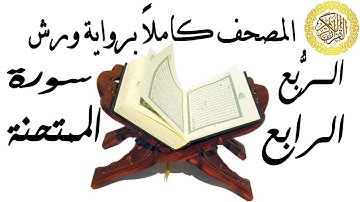 المصحف كاملاً برواية ورش
الرُّبع سورة
الرابع الممتحنة